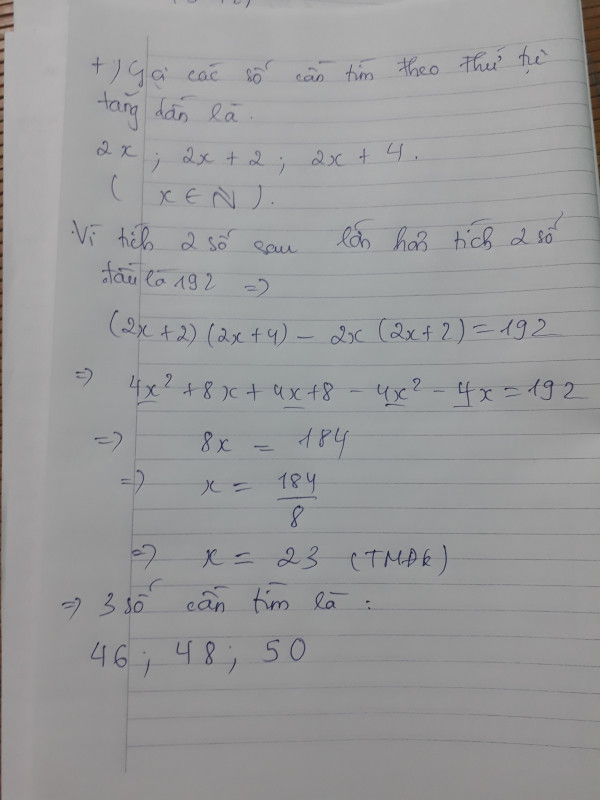 +) Gọi các số cần tìm theo thứ tự
tăng dần là.
2x ; 2x + 2 ; 2x + 4.
( x ∈ N ).
Vì tích 2 số sau lớn hơn tích 2 số
đầu là 192 =>
(2x+2)(2x+4) - 2x(2x+2) = 192
=> 4x² + 8x + 4x + 8 - 4x² - 4x = 192
=> 8x = 184
=> x = 184/8
=> x = 23 (TMĐK)
=> 3 số cần tìm là :
46 ; 48 ; 50